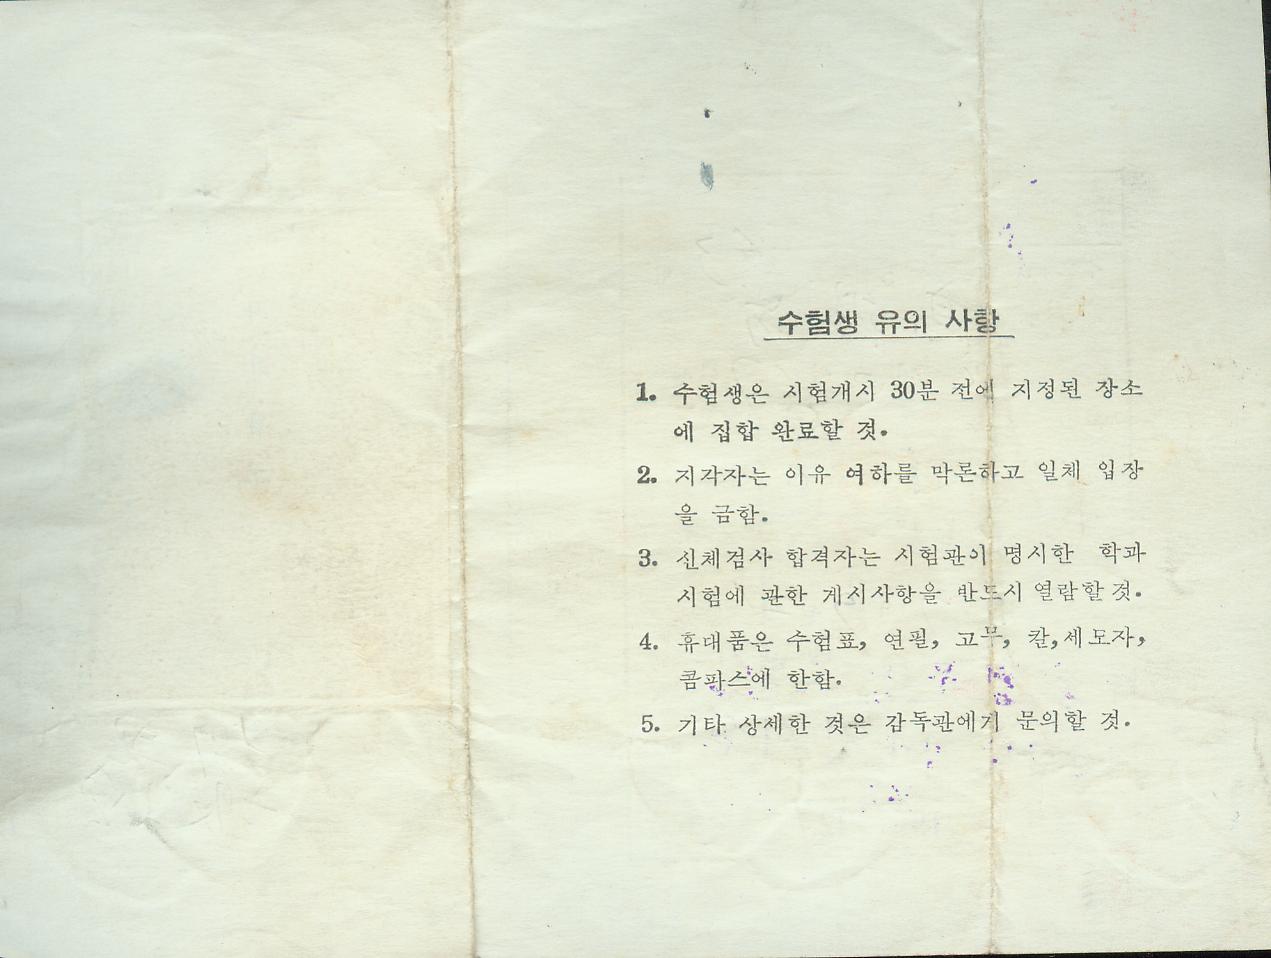 수험생 유의 사항
1. 수험생은 시험개시 30분 전에 지정된 장소
에 집합 완료할 것.
2. 지각자는 이유 여하를 막론하고 일체 입장
을 금함.
3. 신체검사 합격자는 시험관이 명시한 학과
시험에 관한 게시사항을 반드시 열람할것.
4. 휴대품은 수험표, 연필, 고무, 칼,세모자,
콤파스에 한함.
5. 기타 상세한 것은 감독관에게 문의할 것.